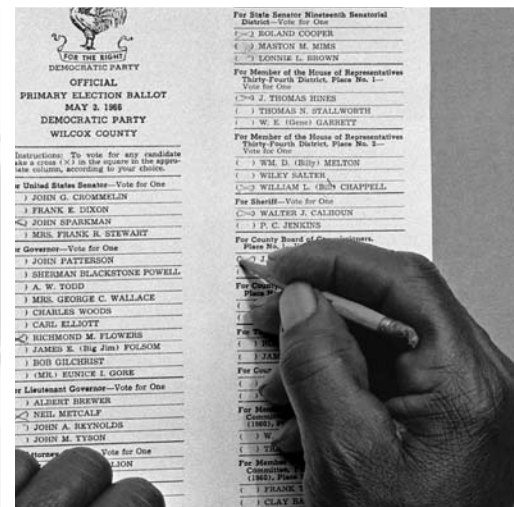 FOR THE RIGHT
DEMOCRATIC PARTY
OFFICIAL
PRIMARY ELECTION BALLOT
MAY 3, 1966
DEMOCRATIC PARTY
WILCOX COUNTY
Instructions: To vote for any candidate
make a cross (X) in the square in the appro-
priate column, according to your choice.
United States Senator—Vote for One
( ) JOHN G. CROMMELIN
( ) FRANK E. DIXON
JOHN SPARKMAN
( ) MRS. FRANK R. STEWART
Governor—Vote for One
( ) JOHN PATTERSON
( ) SHERMAN BLACKSTONE POWELL
( ) A. W. TODD
( ) MRS. GEORGE C. WALLACE
( ) CHARLES WOODS
( ) CARL ELLIOTT
RICHMOND M. FLOWERS
( ) JAMES E. (Big Jim) FOLSOM
( ) BOB GILCHRIST
( ) (MR.) EUNICE I. GORE
Lieutenant Governor—Vote for One
( ) ALBERT BREWER
NEIL METCALF
( ) JOHN A. REYNOLDS
( ) JOHN M. TYSON
Attorney Vote for One
LION
For State Senator Nineteenth Senatorial
District—Vote for One
ROLAND COOPER
( ) MASTON M. MIMS
( ) LONNIE L. BROWN
For Member of the House of Representatives
Thirty-Fourth District, Place No. 1—
Vote for One
J. THOMAS HINES
( ) THOMAS N. STALLWORTH
( ) W. E. (Gene) GARRETT
For Member of the House of Representatives
Thirty-Fourth District, Place No. 2—
Vote for One
( ) WM. D. (Billy) MELTON
( ) WILEY SALTER
WILLIAM L. (Bill) CHAPPELL
For Sheriff—Vote for One
WALTER J. CALHOUN
( ) P. C. JENKINS
For County Board of Commissioners,
Place No. 1—Vote
J.
For County
Place
For
( ) JAM
For Cour
For Mem
Committee
(1966), Place
( ) W.
( )
For Member
Committee,
(1966), Place
( ) FRANK
( ) CLAY